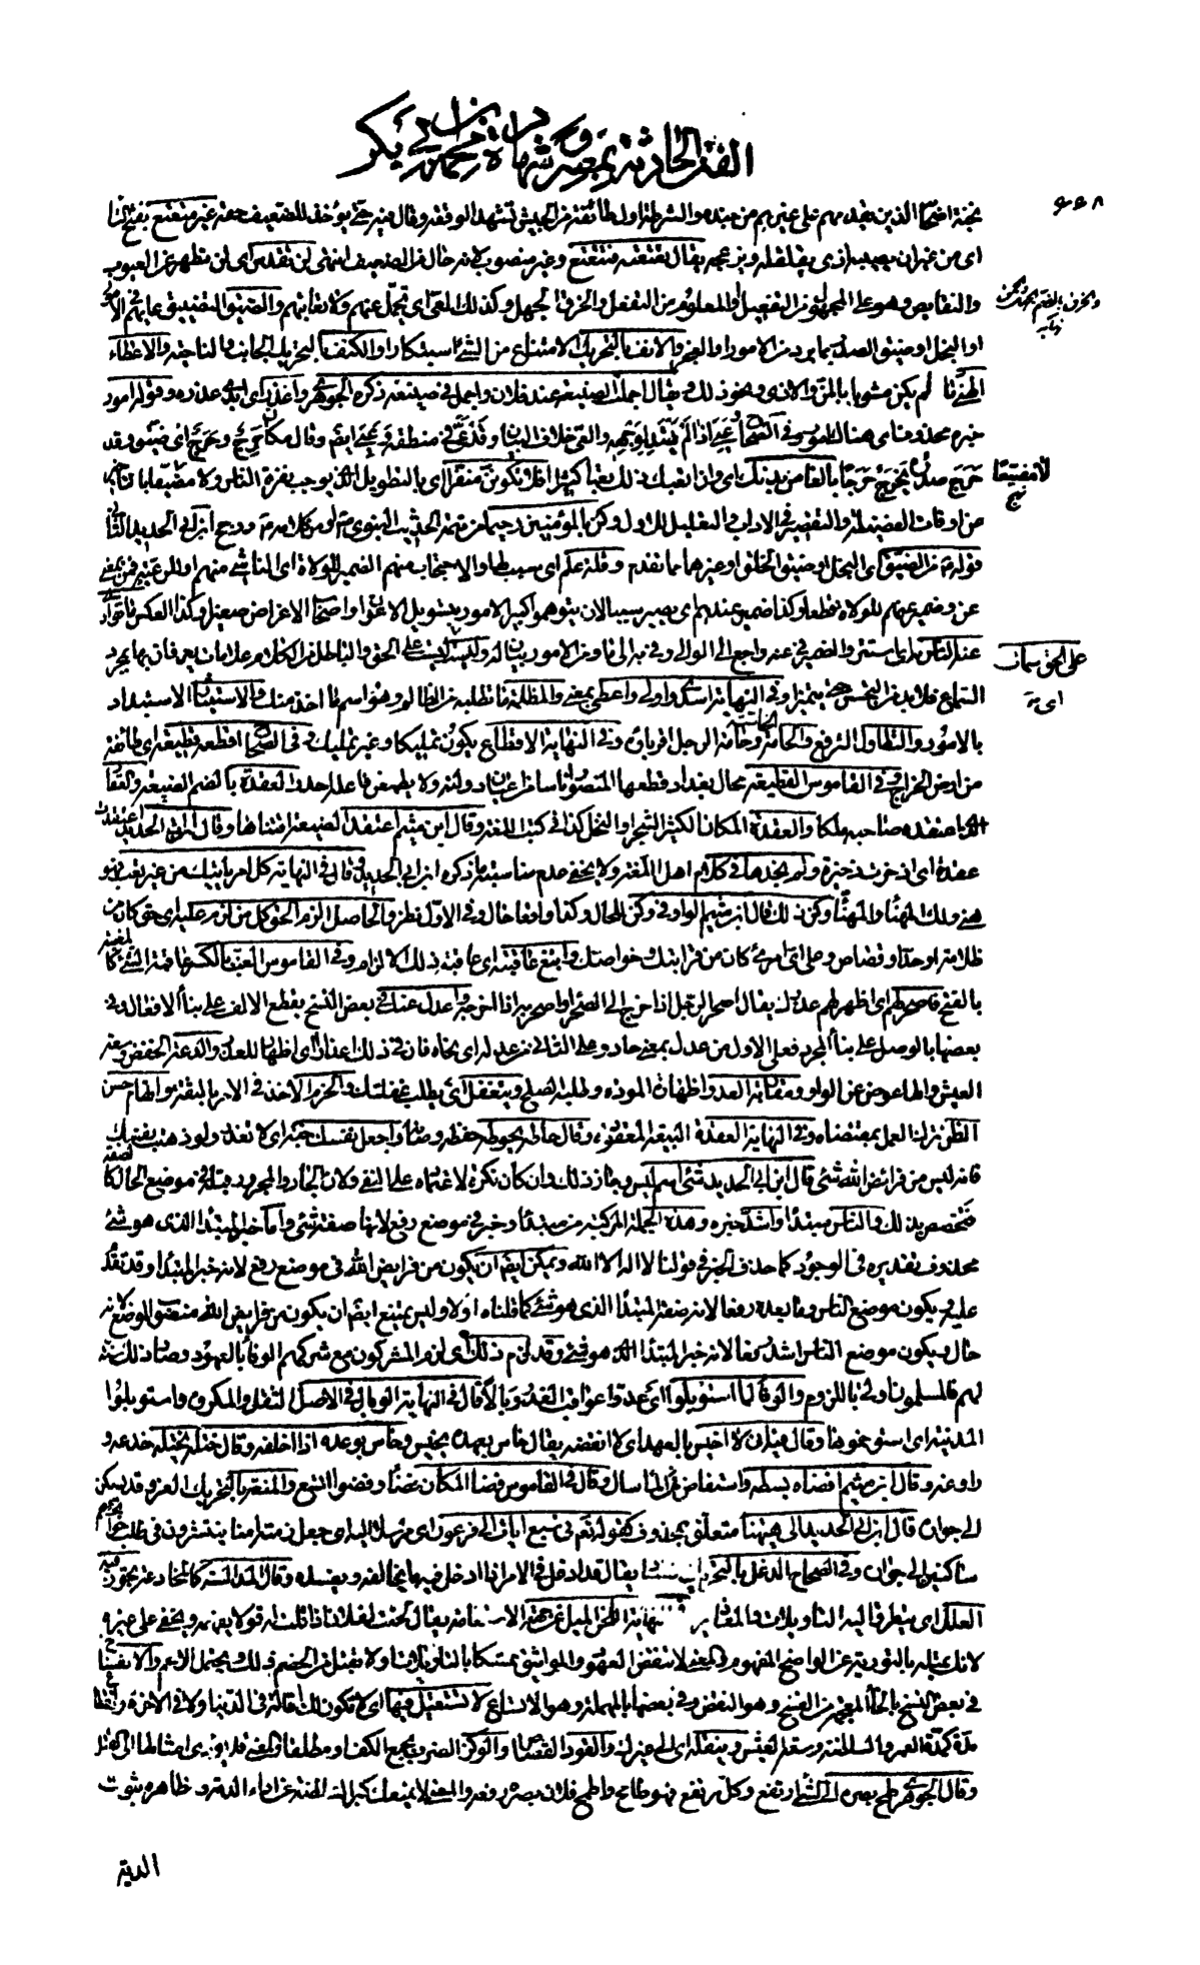 الفتن الحادثة بمصر وشهادة محمد بن أبي بكر
۶۶۸
بمحنة اصحابه الذين يقدمهم على غيرهم من جنده والشرطة اول طائفة من الجيش تشهد الوقعة وقال فيه حتى يؤخذ للضعيف حقه غير متعتع بفتح التاء
اى من غير ان يصيبه اذى يقلقله ويزعجه يقال تعتعه فتتعتع وغير منصوب لانه حال من الضعيف انتهى لن تقدس اى لن تطهر عن العيوب
والنقايص وهو على المجهول من التفعيل والمعلوم من التفعل والخرق الجهل وكذلك العى اى تحمل عنهم ولا تعاتبهم والضيق التضييق عليهم فى الامور
او البخل او ضيق الصدر بما يرد من الامور او العجز والانف بالتحريك الامتناع من الشىء استكبارا والكنف بالتحريك الجانب والناحية والاعطاء
الهنىء ما لم يكن مشوبا بالمن والاذى ونحو ذلك ويقال اجملت الصنيعة عند فلان واجمل فى صنيعه ذكره الجوهرى واعذر اى ابدى عذره وقوله امور
خبره محذوف اى هناك امور وفى الصحاح عيى اذا لم يهتد لوجهه والعى خلاف البيان وقد عى فى منطقه وعيى ايضا وقال مكان حرج وحرج اى ضيق وقد
حرج صدره يحرج حرجا بالغا من بدنك اى وان اتعبك ذلك تعبا كثيرا فلا تكونن منفرا اى بالتطويل الذى يوجب نفرة الناس ولا مضيعا
من اوقات الفضيلة والتقصير فى الاداب والتعليل للاول وكن بالمؤمنين رحيما من تتمة الحديث النبوى او من كلامه ورجح ابن ابى الحديد الثانى
قوله من الضيق اى البخل او ضيق الخلق او غيرهما مما تقدم وقلة علم اى سبب لها والاحتجاب منهم الضمير للولاة اى الناشى منهم
عن وضمير عنهم للولاة قطعا وكذا ضمير عندهم اى يصير سببا لان يتوهموا كبير الامور بتسويل الاعوان واصحاب الاغراض صغيرا وكذا العكس ما توارى
عنه الناس به اى استتر والضمير فى عنه راجع الى الوالى وفى به الى ما ومن الامور بيان له وليست على الحق اى ليست على الحق والباطل من الكلام علامات يعرفان بها بمجرد
السماع فلا بد من التجسس حتى يتميزا وفى النهاية اسدى واولى واعطى بمعنى والمظلمة ما تطلبه من الظالم وهو اسم ما اخذ منك والاستيثار الاستبداد
بالامور والتطاول الترفع والحامة الخاصة وحامة الرجل اقرباؤه وفى النهاية الاقطاع يكون تمليكا وغير تمليك وفى الصحاح اقطعه قطيعة اى طائفة
من ارض الخراج وفى القاموس القطيعة محال ببغداد قطعها المنصور اناسا من اعيان دولته ولا يطمعن فاعله احد والعقدة بالضم الضيعة والعقار
الذى اعتقده صاحبه ملكا والعقدة المكان الكثير الشجر او النخل كذا فى كتب اللغة وقال ابن ميثم اعتقد الضيعة اقتناها وقال ابن ابى الحديد اعتقدت
عقدة اى ادخرت ذخيرة ولم نجدها فى كلام اهل اللغة ولا يخفى عدم مناسبة ما ذكره ابن ابى الحديد وقال فى النهاية كل امر ياتيك من غير تعب فهو
هنىء ولك المهنأ والمهنى وكن فى ذلك قال ابن ميثم الواو فى وكن للحال وكذا واقعا حال وفى الاول نظر والحاصل الزم الحق كل من لزم عليه اى حق كان من
ظلامة او حد او قصاص وعلى اى امرء كان من قرابتك وخواصك وابتغ عاقبته اى عاقبة ذلك الالزام وفى القاموس الغب بالكسر عاقبة الشىء كالمغبة
بالفتح فاصحر لهم اى اظهر لهم عذرك يقال اصحر الرجل اذا خرج الى الصحراء واصحر به اذا اخرجه واعدل عنك فى بعض النسخ بقطع الالف على بناء الافعال وفى
بعضها بالوصل على بناء المجرد فعلى الاول من عدل بمعنى حاد وعلى الثانى من عدله اى نحاه فان فى ذلك اعذارا اى اظهارا للعذر والدعة الخفض وسعة
العيش والهاء عوض عن الواو ومقاربة العدو اظهاره المودة وطلبه الصلح ويتغفل اى يطلب غفلتك والحزم الاخذ فى الامر بالثقة واتهام حسن
الظن ترك العمل بمقتضاه وفى النهاية العقدة البيعة المعقودة وقال حاطه يحوطه حفظه وصانه واجعل نفسك جنة اى لا تغدر ولو ذهبت نفسك
فانه ليس من فرائض الله شىء قال ابن ابى الحديد شىء اسم ليس وجاز ذلك وان كان نكرة لاعتماده على النفى ولان الجار والمجرور قبله فى موضع الحال كالصفة
فتخصص بذلك والناس مبتدا واشد خبره وهذه الجملة المركبة من مبتدا وخبر فى موضع رفع لانها صفة شىء واما خبر المبتدا الذى هو شىء
محذوف تقديره فى الوجود كما حذف الخبر فى قولنا لا اله الا الله ويمكن ايضا ان يكون من فرايض الله فى موضع رفع لانه خبر المبتدا وقد تقدم
عليه ويكون موضع الناس وما بعده رفعا لانه صفة المبتدا الذى هو شىء كما قلناه اولا وليس يمتنع ايضا ان يكون من فرايض الله منصوب الموضع لانه
حال ويكون موضع الناس اشد رفعا لانه خبر المبتدا الذى هو شىء وقد لزم ذلك اى لزم المشركون مع شركهم الوفاء بالعهود وصار ذلك سنة
لهم فالمسلمون اولى باللزوم والوفاء لما استوبلوا اى عدوا عواقب الغدر وبالا قال فى النهاية الوبال فى الاصل الثقل والمكروه واستوبلوا
المدينة اى استوخموها وقال فيه ان لا اخيس بالعهد اى لا انقضه يقال خاس بعهده يخيس وخاس بوعده اذا اخلفه وقال ختله يختله خدعه و
راوغه وقال ابن ميثم افضاه بسطه واستفاض الماء سال وقال فى القاموس فضا المكان فضاء وفضوا اتسع والمنعة بالتحريك العز وقد يسكن
الى جواره قال ابن ابى الحديد الى هيهنا متعلق بمحذوف كقوله تعالى فى تسع ايات الى فرعون اى مرسلا اليه اى جعل الله ذمته امنا ينتشرون فى طلب حوائجهم
ساكنين الى جواره وفى الصحاح الدغل بالتحريك الفساد يقال قد ادغل فى الامر اذا ادخل فيه ما يخالفه ويفسده وقال المدالسة كالمخادعة تجوز فيه
العلل اى يتطرق اليه التاويلات والمعاذير وفى النهاية اللحن الميل عن جهة الاستقامة يقال لحنت لفلان اذا قلت له قولا يفهمه ويخفى على غيره
لانك تميله بالتورية عن الواضح المفهوم والمعنى لا تنقض العهود والمواثيق تمسكا بالتاويلات ولا تقبل من الخصم ذلك ويحتمل الاعم والانفساخ
فى بعض النسخ بالخاء المعجمة من الفسخ وهو النقض وفى بعضها بالمهملة وهو الاتساع لا تستقيل فيها اى لا تكون لك اقالة فى الدنيا ولا فى الاخرة وانقطاع
مدة كمدة العمر والسلطنة وسعة العيش وينقله اى الى غيرك والقود القصاص والوكز الضرب بجمع الكف او مطلقا والمعنى
وقال الجوهرى طمح بصره الى الشىء ارتفع وكل مرتفع فهو طامح واطمح فلان بصره رفعه والمعنى لا يمنعك كبر السلطنة عن اداء الدية وظاهره ثبوت
والخرق بالضم
نهاية
لا مضيعا
نهج
على الحق سمات
اى
الدية